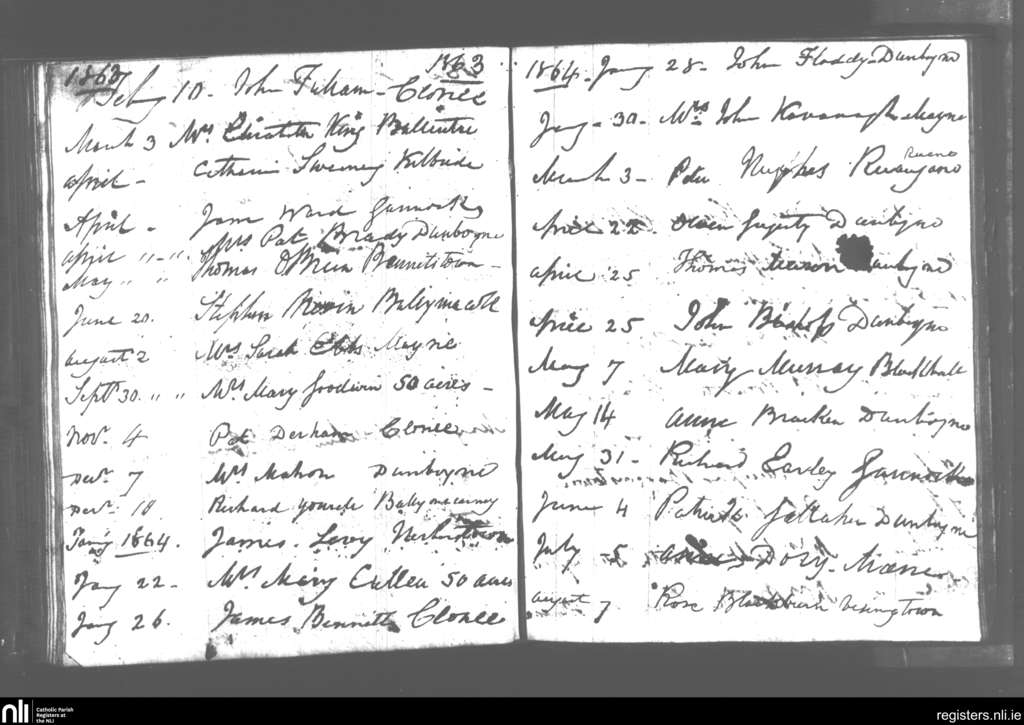 1863 1863
Feby 10 - John Fulham - Clonee
March 3 Mrs King Ballintra
April - Catherin Sweeney Kilbride
April - Jane Ward
April " - " Mrs Pat Brady Dunboyne
May " " Thomas O'Brien Bennetstown -
June 20. Stephen Ballymacoll
August 2 Mrs Sarah Mayne
Sept 30. " " Mrs Mary Goodwin 50 acres -
Nov. 4 Pat Derham Clonee
Decr. 7 Mrs Mahon Dunboyne
Decr. 18 Richard Ballymacarney
Jany 1864. James Levy
Jany 22 - Mrs Mary Cullen 50 acres
Jany 26. James Bennett Clonee
1864 - Jany 28 - John Dunboyne
Jany - 30 - Mrs John Kavanagh Mayne
March 3 - Peter Hughes
April 22 - Owen Dunboyne
April 25 Thomas Dunboyne
April 25 John Dunboyne
May 7 Mary Murray Blackhall
May 14 Anne Bracken Dunboyne
May 31 - Richard Earley
June 4 Patrick Gallaher Dunboyne
July - 5
August 7 Rose Blackburn
nli Catholic Parish
Registers at
the NLI
registers.nli.ie